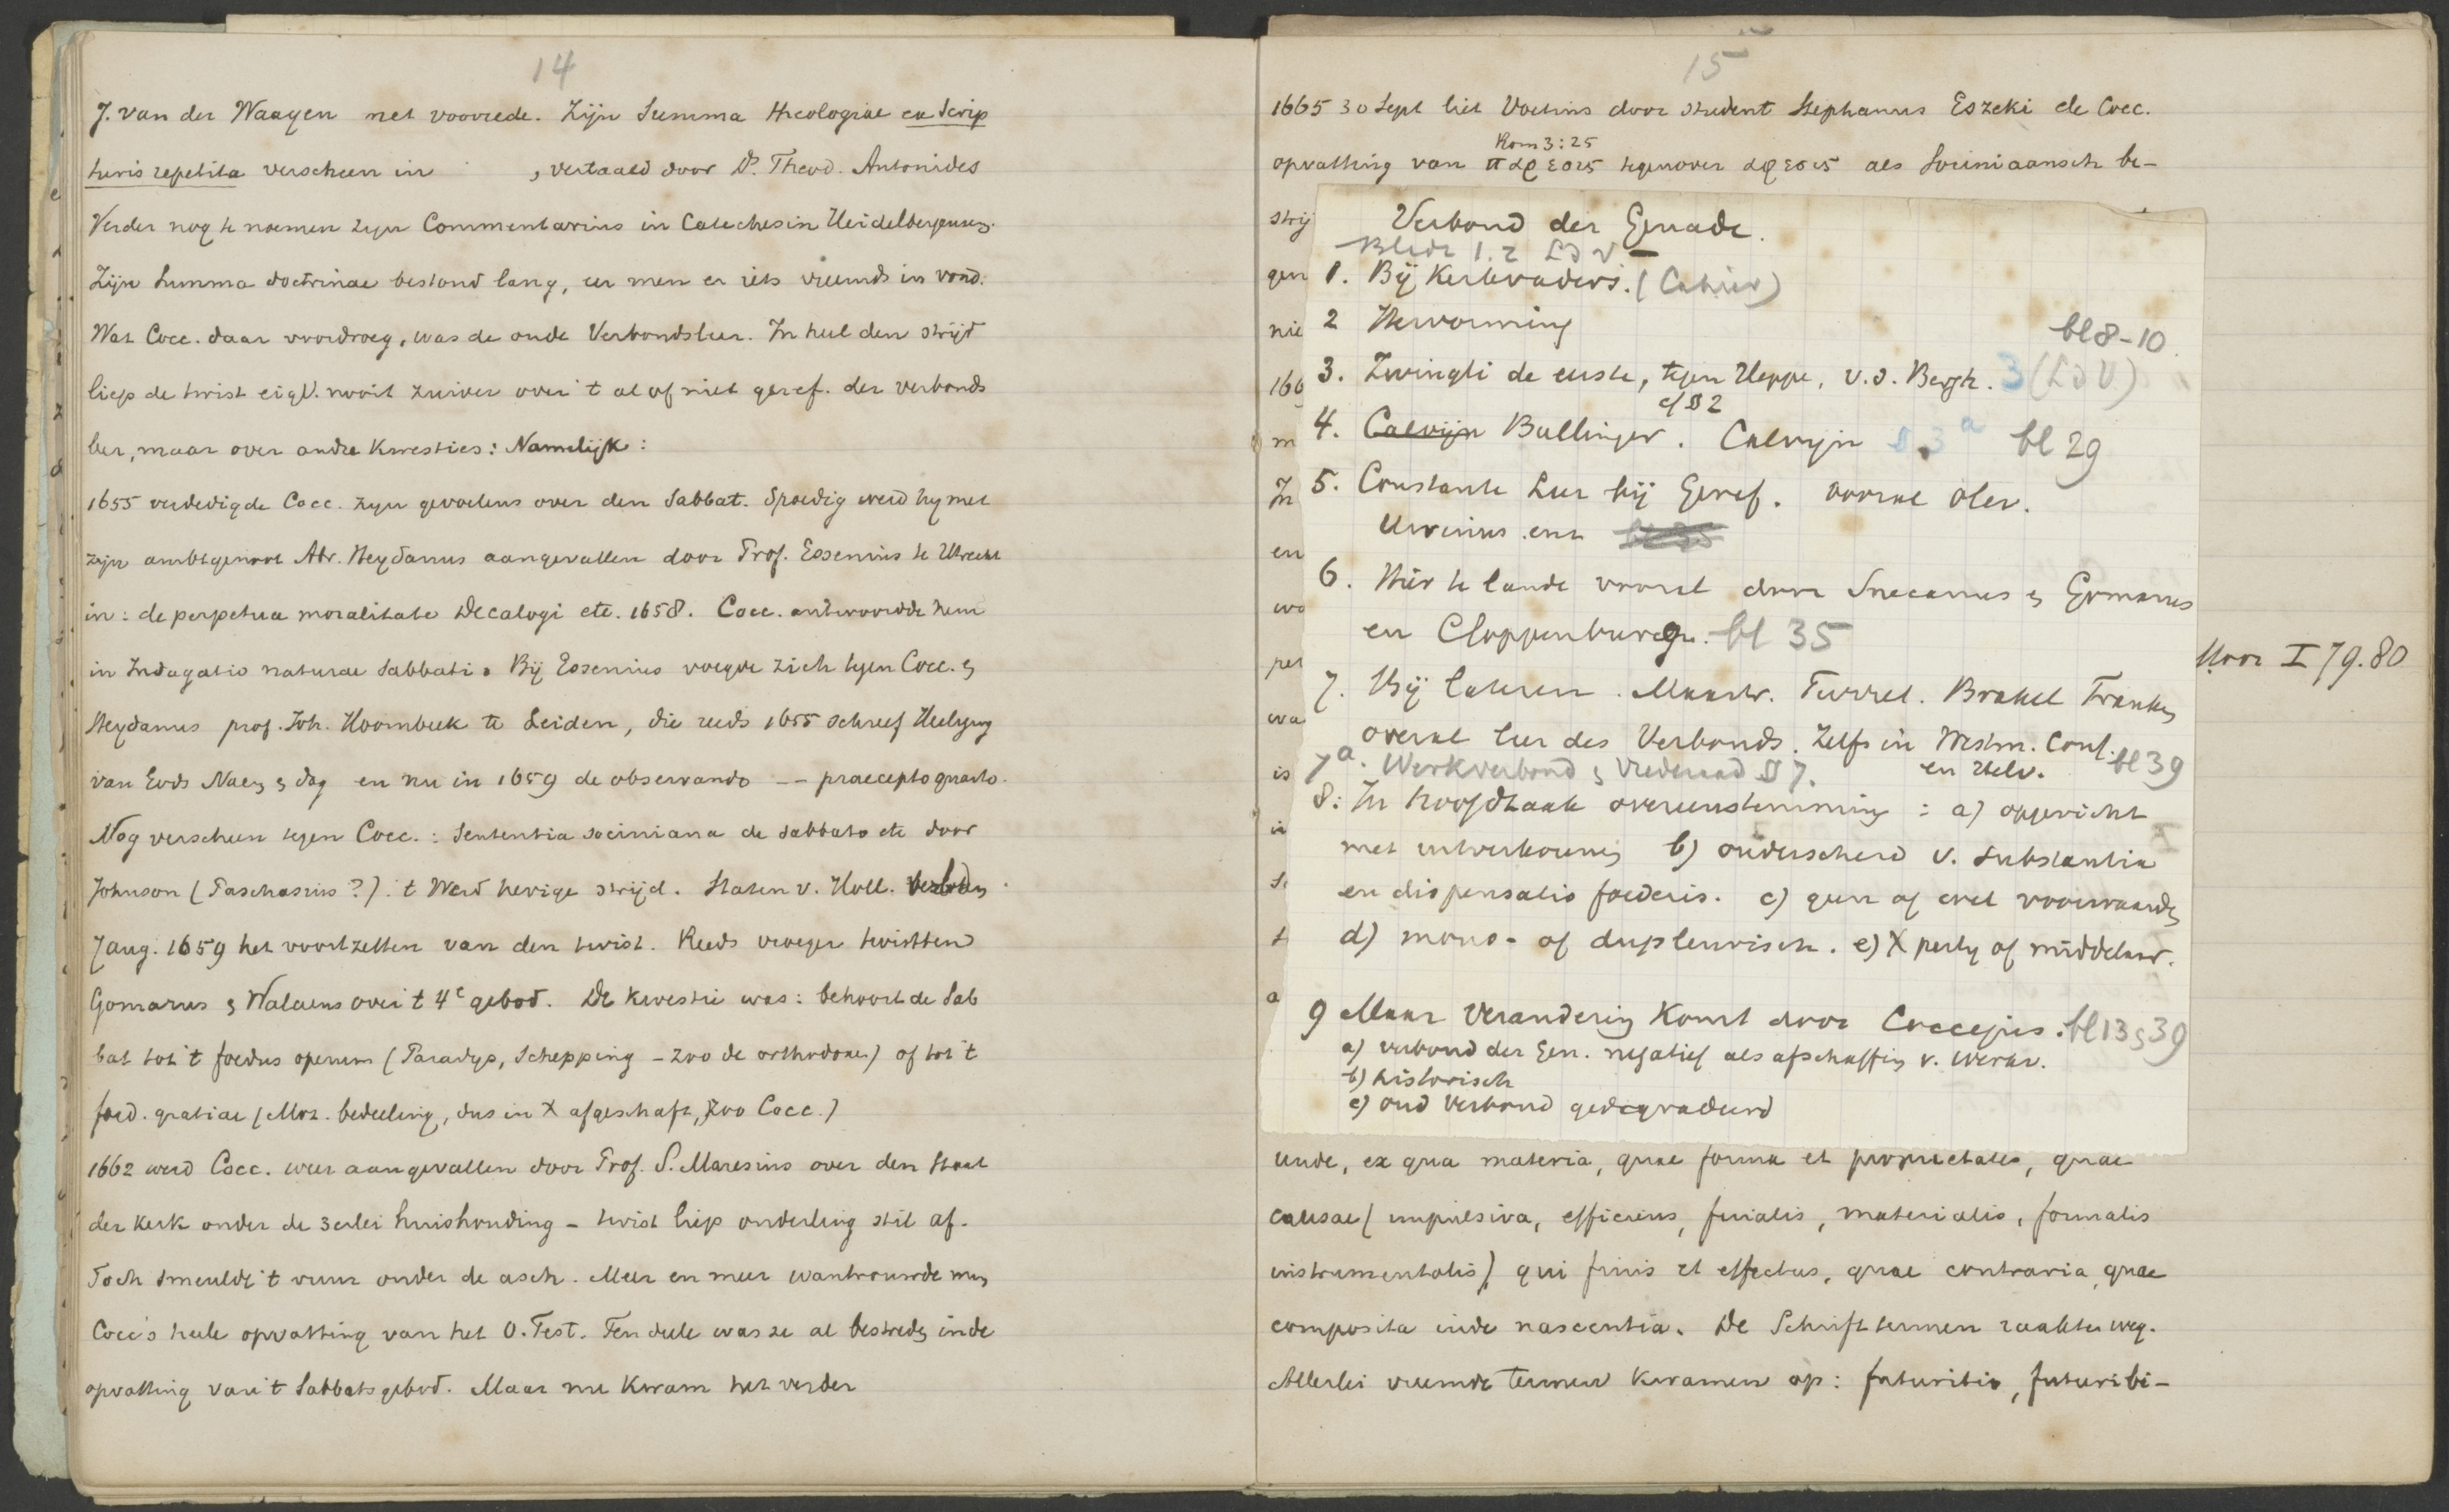 14
J. van der Waayen met voorrede. Zijn Summa theologiae ex Scrip
turis repetita verscheen in , vertaald door Ds. Theod. Antonides
Verder nog te noemen zijn Commentarius in Catechesin Heidelbergensem.
Zijn Summa doctrinae bestond lang, eer men er iets vreemds in vond.
Wat Cocc. daar voordroeg, was de oude Verbondsleer. In heel den strijd
liep de twist eigl. nooit zuiver over 't al of niet geref. der verbonds
leer, maar over andre kwesties: Namelijk:
1655 verdedigde Cocc. zijn gevoelens over den Sabbat. Spoedig werd hij met
zijn ambtgenoot Abr. Heydanus aangevallen door Prof. Essenius te Utrecht
in: de perpetua moralitate Decalogi etc. 1658. Cocc. antwoordde hem
in Indagatio naturae Sabbati. Bij Essenius voegde zich tegen Cocc. &
Heydanus prof. Joh. Hoornbeek te Leiden, die reeds 1655 schreef Heiliging
van Gods Naam & dag en nu in 1659 de observando -- praecepto quarto.
Nog verscheen tegen Cocc.: Sententia sociniana de sabbato etc door
Johnson (Paschasius?). 't Werd hevige strijd. Staten v. Holl. verboden
7 aug. 1659 het voortzetten van den twist. Reeds vroeger twistten
Gomarus & Walaeus over 't 4e gebod. De kwestie was: behoort de Sab
bat tot 't foedus operum (Paradijs, Schepping - zoo de orthodoxen) of tot 't
foed. gratiae (Moz. bedeeling, dus in X afgeschaft, zoo Cocc.)
1662 werd Cocc. weer aangevallen door Prof. S. Maresius over den staat
der kerk onder de 3erlei huishouding - twist liep onderling stil af.
Toch smeulde 't vuur onder de asch. Meer en meer wantrouwde men
Cocc's heele opvatting van het O. Test. Ten deele was ze al bestreden in de
opvatting van 't Sabbatsgebod. Maar nu kwam het verder
15
1665 30 Sept liet Voetius door student Stephanus Eszeki de Cocc.
Rom 3:25
opvatting van παρεσις tegenover αφεσις als Sociniaansch be-
strij
gen
nie
166
m
In
en
wo
per
wa
is
in
Se
t
a
Verbond der Genade.
Bladz 1.2 LdV
1. Bij Kerkvaders. (Cahier)
2 Hervorming
bl 8-10.
3. Zwingli de eerste, tegen Heppe, v.d. Bergh. 3 (LdV)
cf § 2
4. Calvijn Bullinger. Calvijn § 3a bl 29
5. Constante Leer bij Geref. vooral Olev.
Ursinus enz
6. Hier te lande vooral door Snecanus & Gomarus
en Cloppenburg. bl 35
Voor I 79.80
7. Bij lateren. Mastr. Turret. Brakel Franken
overal leer des Verbonds. Zelfs in Westm. Conf.
en Helv. bl 39
7a. Werkverbond & Vrederaad § 7.
8: In hoofdzaak overeenstemming: a) opgericht
met uitverkorenen b) onderscheid v. substantia
en dispensatio foederis. c) geen of wel voorwaarden
d) mono- of dupleurisch. e) X partij of middelaar.
9 Maar verandering komt door Coccejus. bl 13 & 39
a) verbond der Gen. negatief als afschaffing v. werkv.
b) historisch
c) oud Verbond gedegradeerd
unde, ex qua materia, quae forma et proprietates, quae
causae (impulsiva, efficiens, finalis, materialis, formalis
instrumentalis), qui finis et effectus, quae contraria, quae
composita inde nascentia. De Schrifttermen raakten weg.
Allerlei vreemde termen kwamen op: futuritio, futuribi-